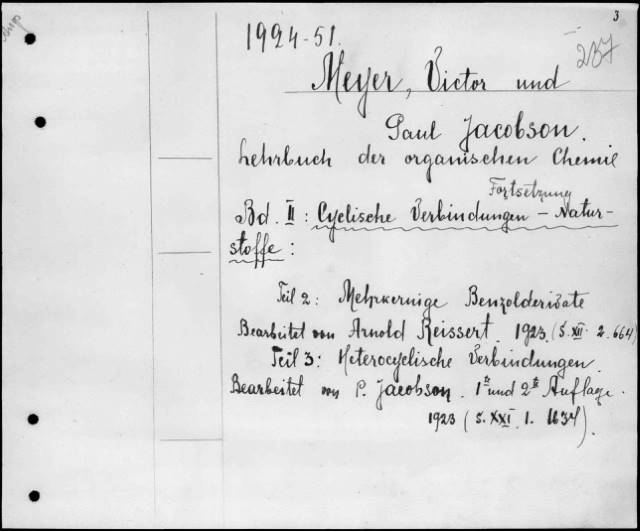 3
1924-51.
237
Meyer, Victor und
Paul Jacobson.
Lehrbuch der organischen Chemie
Fortsetzung
Bd. II : Cyclische Verbindungen – Natur-
stoffe :
Teil 2: Mehrkernige Benzolderivate
Bearbeitet von Arnold Reissert. 1923. (S. XII. 2. 664)
Teil 3: Heterocyclische Verbindungen.
Bearbeitet von P. Jacobson. 1te und 2te Auflage.
1923 (S. XXI. 1. 1634).